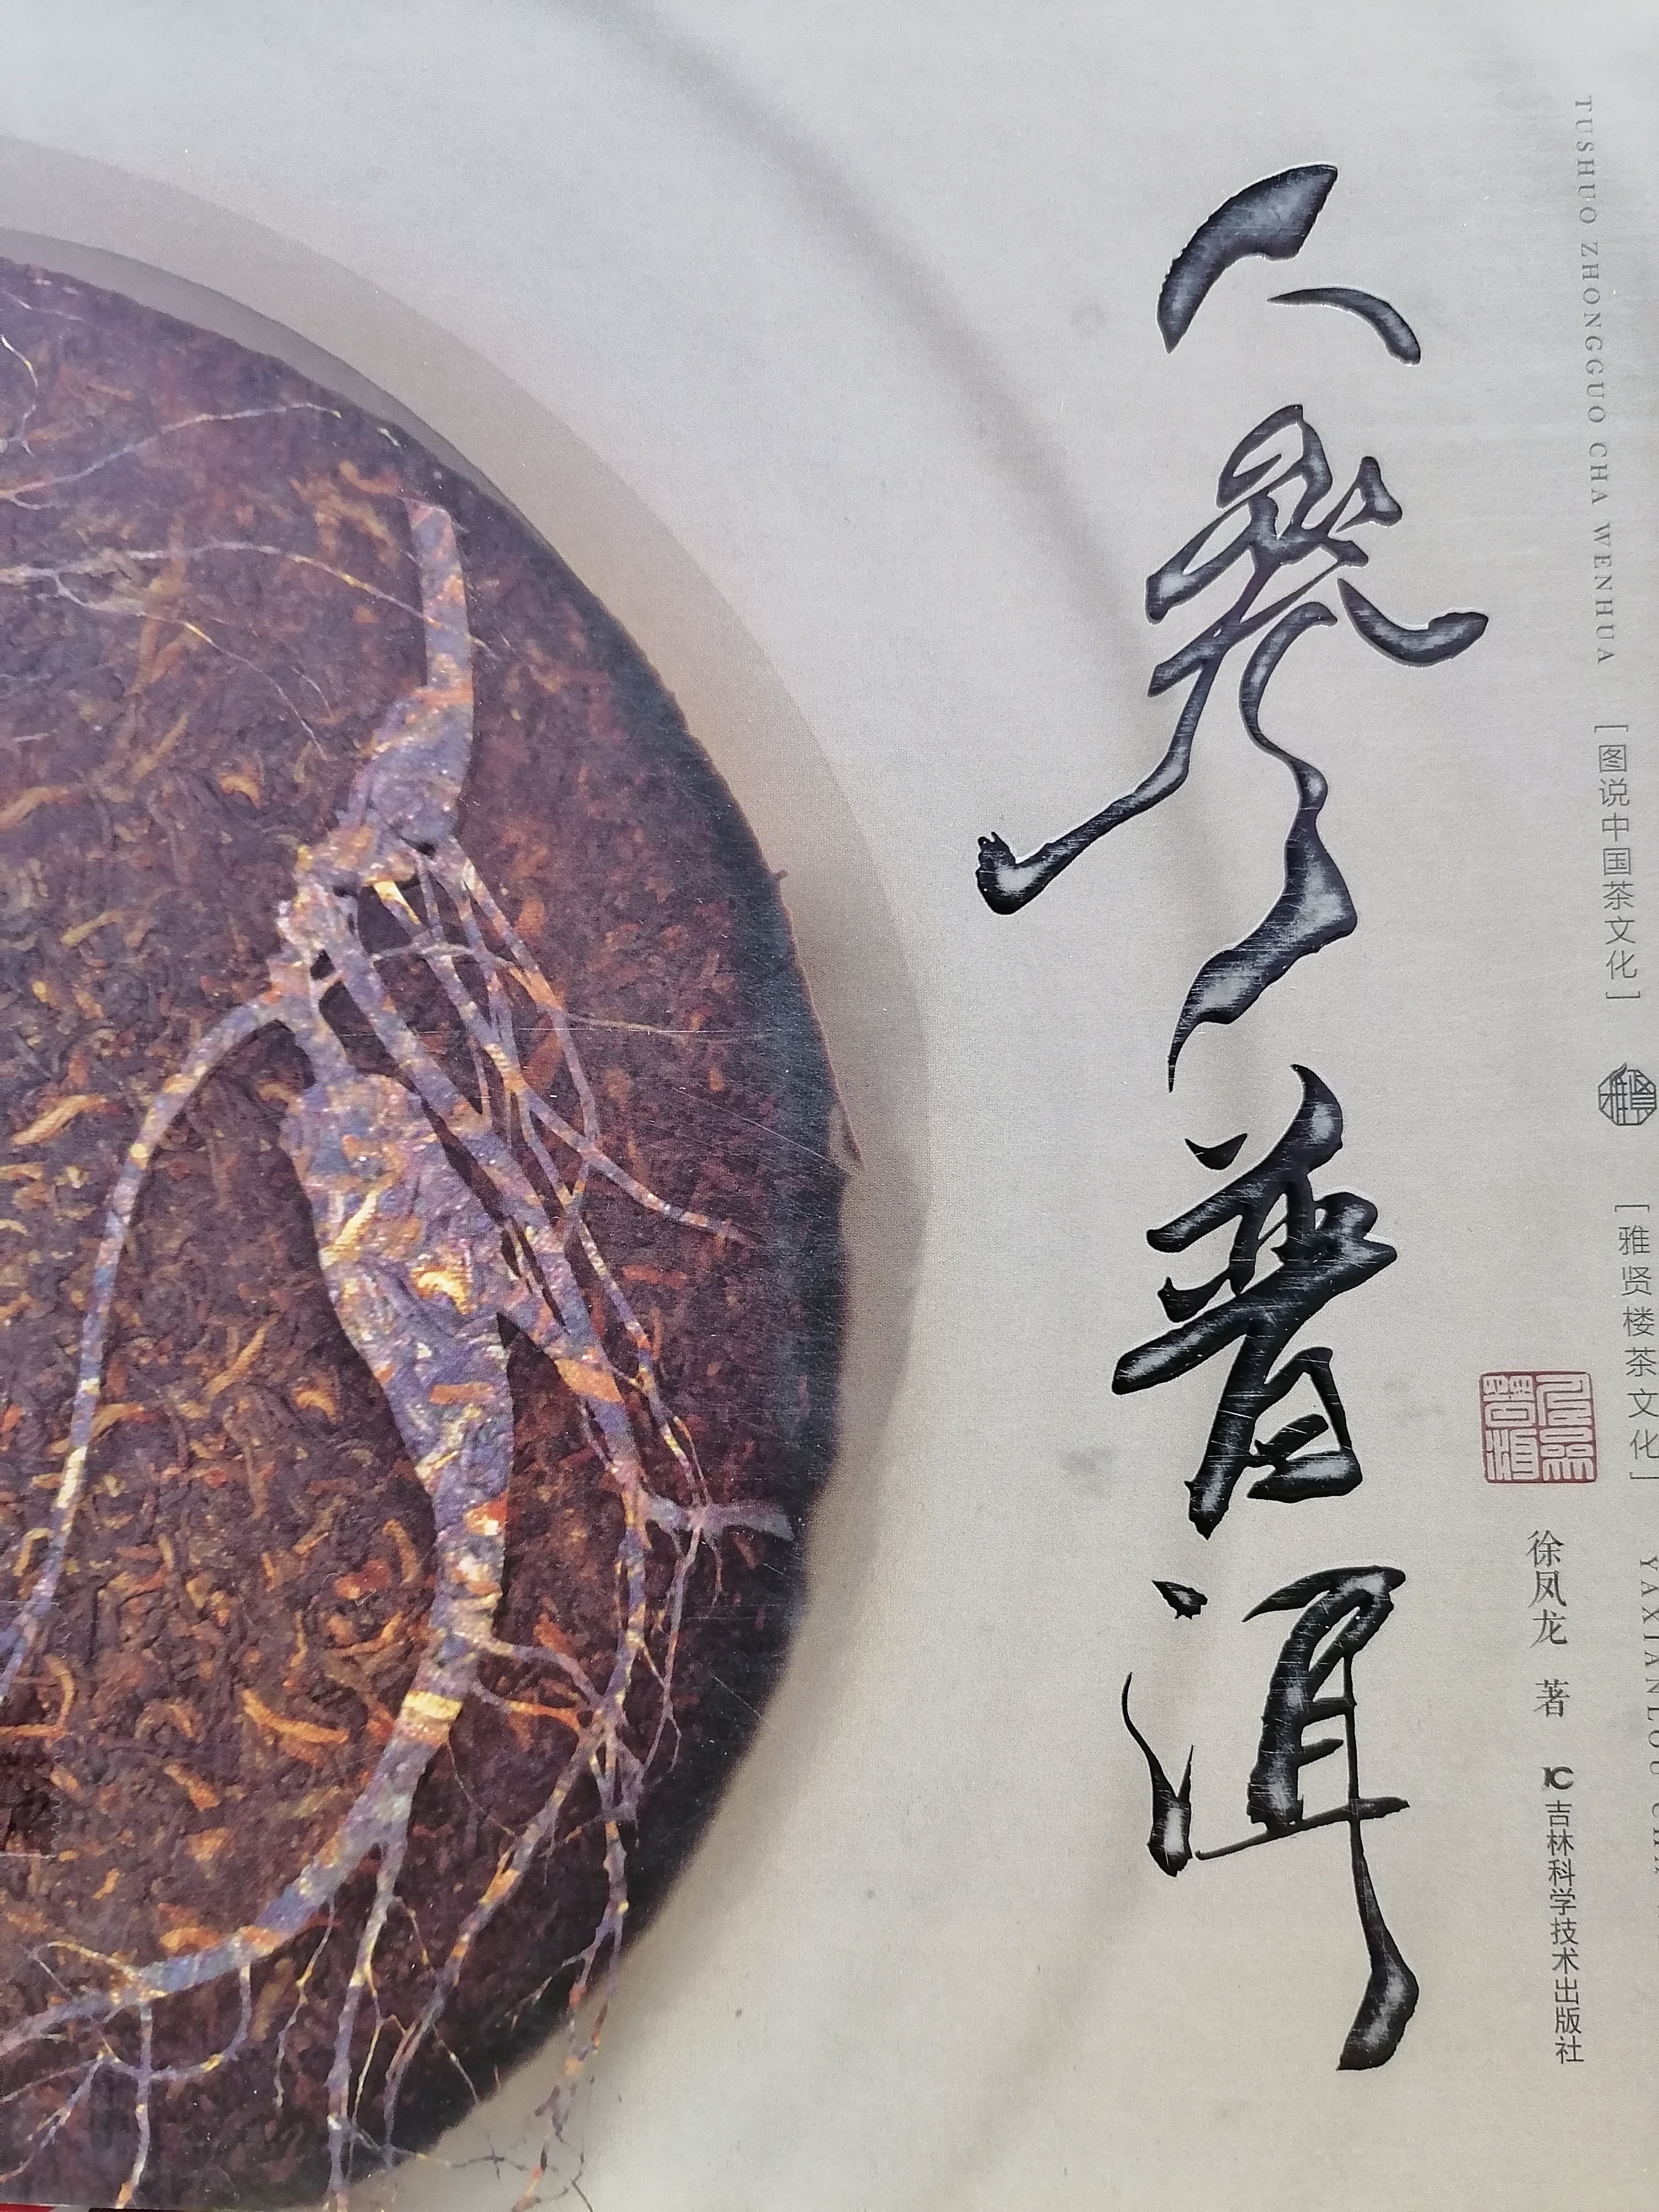 TUSHUO ZHONGGUO CHA WENHUA
[图说中国茶文化]
雅贤
[雅贤楼茶文化]
YAXIANLOU CHA
人参普洱
人参普洱
徐凤龙 著
吉林科学技术出版社